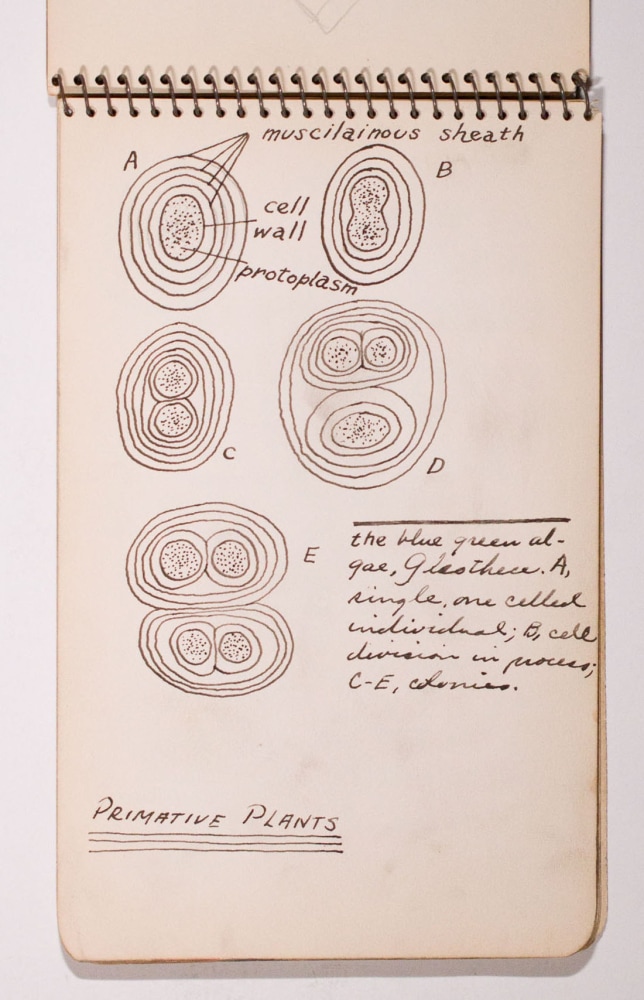 muscilainous sheath
A
B
cell
wall
protoplasm
C
D
E
the blue green al-
gae, Gleothece. A,
single, one celled
individual; B, cell
division in process;
C-E, colonies.
PRIMATIVE PLANTS